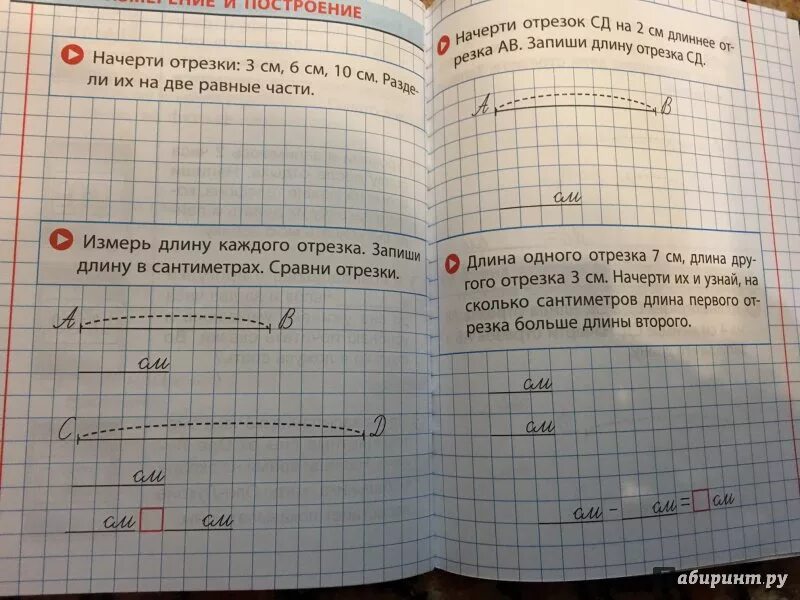 ИЗМЕРЕНИЕ И ПОСТРОЕНИЕ
Начерти отрезки: 3 см, 6 см, 10 см. Разде-
ли их на две равные части.
Измерь длину каждого отрезка. Запиши
длину в сантиметрах. Сравни отрезки.
A B
см
C D
см
см см
Начерти отрезок СД на 2 см длиннее от-
резка АВ. Запиши длину отрезка СД.
A B
см
Длина одного отрезка 7 см, длина дру-
гого отрезка 3 см. Начерти их и узнай, на
сколько сантиметров длина первого от-
резка больше длины второго.
см
см
см - см = см
абиринт.ру